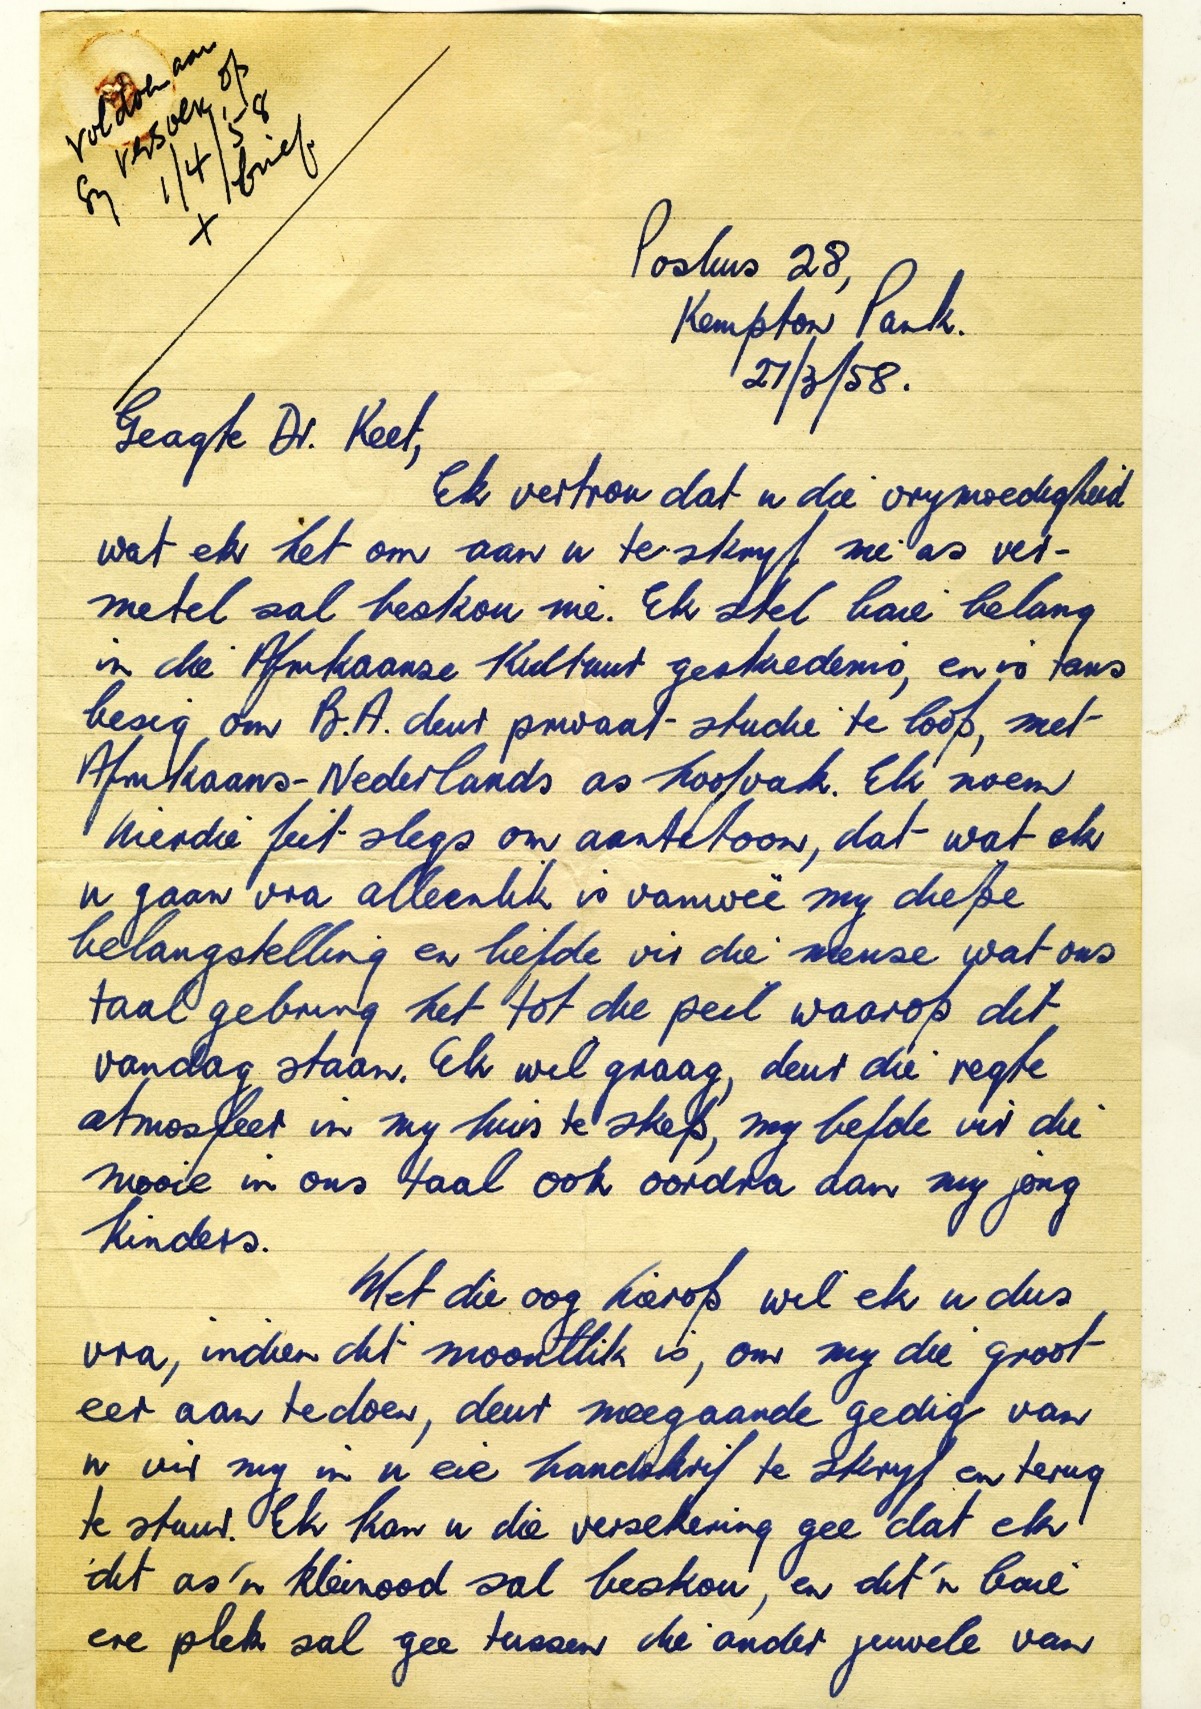 voldoen aan
sy versoek op
1/4/58
+ brief
Posbus 28,
Kempton Park.
27/3/58.
Geagte Dr. Keet,
Ek vertrou dat u die vrymoedigheid
wat ek het om aan u te skryf, nie as ver-
metel sal beskou nie. Ek stel baie belang
in die Afrikaanse Kultuur geskiedenis, en is tans
besig om B.A. deur privaat-studie te loop, met
Afrikaans-Nederlands as hoofvak. Ek noem
hierdie feit slegs om aantetoon, dat wat ek
u gaan vra alleenlik is vanweë my diepe
belangstelling en liefde vir die mense wat ons
taal gebring het tot die peil waarop dit
vandag staan. Ek wil graag, deur die regte
atmosfeer in my huis te skep, my liefde vir die
mooie in ons taal ook oordra aan my jong
kinders.
Met die oog hierop wil ek u dus
vra, indien dit moontlik is, om my die groot
eer aan tedoen, deur meegaande gedig van
u vir my in u eie handskrif te skryf en terug
te stuur. Ek kan u die versekering gee dat ek
dit as 'n kleinood sal beskou, en dit 'n baie
ere plek sal gee tussen die ander juwele van